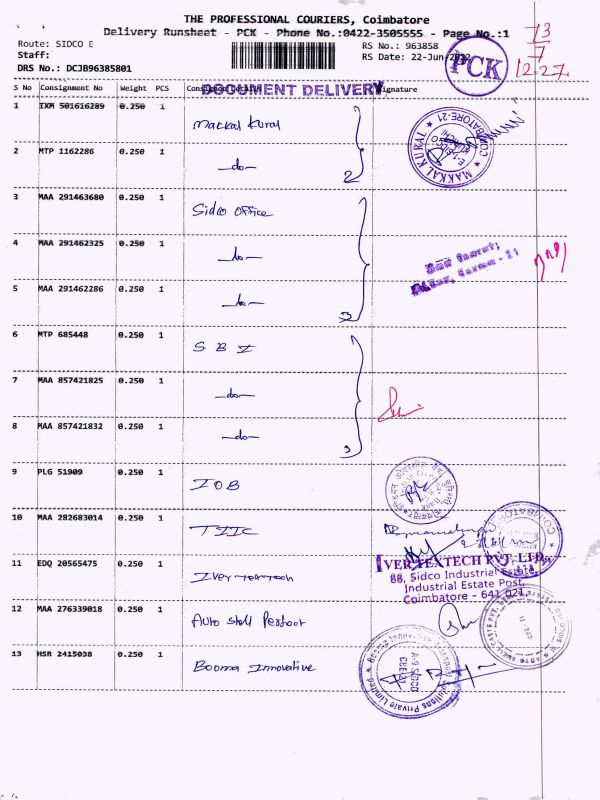 THE PROFESSIONAL COURIERS, Coimbatore
Delivery Runsheet - PCK - Phone No.:0422-3505555 - Page No.:1
Route: SIDCO E
Staff:
DRS No.: DCJB96385801
RS No.: 963858
RS Date: 22-Jun-
PCK
13
7
12.27.
S No Consignment No Weight PCS Signature
DOCUMENT DELIVERY
1 IXM 501616289 0.250 1 Makkal Kural
2 MTP 1162286 0.250 1 -do- 2
MAKKAL KURAL COIMBATORE-21
3 MAA 291463680 0.250 1 Sidco Office
4 MAA 291462325 0.250 1 -do-
5 MAA 291462286 0.250 1 -do- 3
6 MTP 685448 0.250 1 S B I
7 MAA 857421825 0.250 1 -do-
8 MAA 857421832 0.250 1 -do- 3
9 PLG 51909 0.250 1 IOB
10 MAA 282683014 0.250 1 TIIC
11 EDQ 20565475 0.250 1
VERTEXTECH PVT. LTD.,
88, Sidco Industrial Estate,
Industrial Estate Post,
Coimbatore - 641 021.
12 MAA 276339018 0.250 1 Auto Shell Perfect
13 HSR 2415038 0.250 1 Booma Innovative
A-9 SIDCO
CBE-21